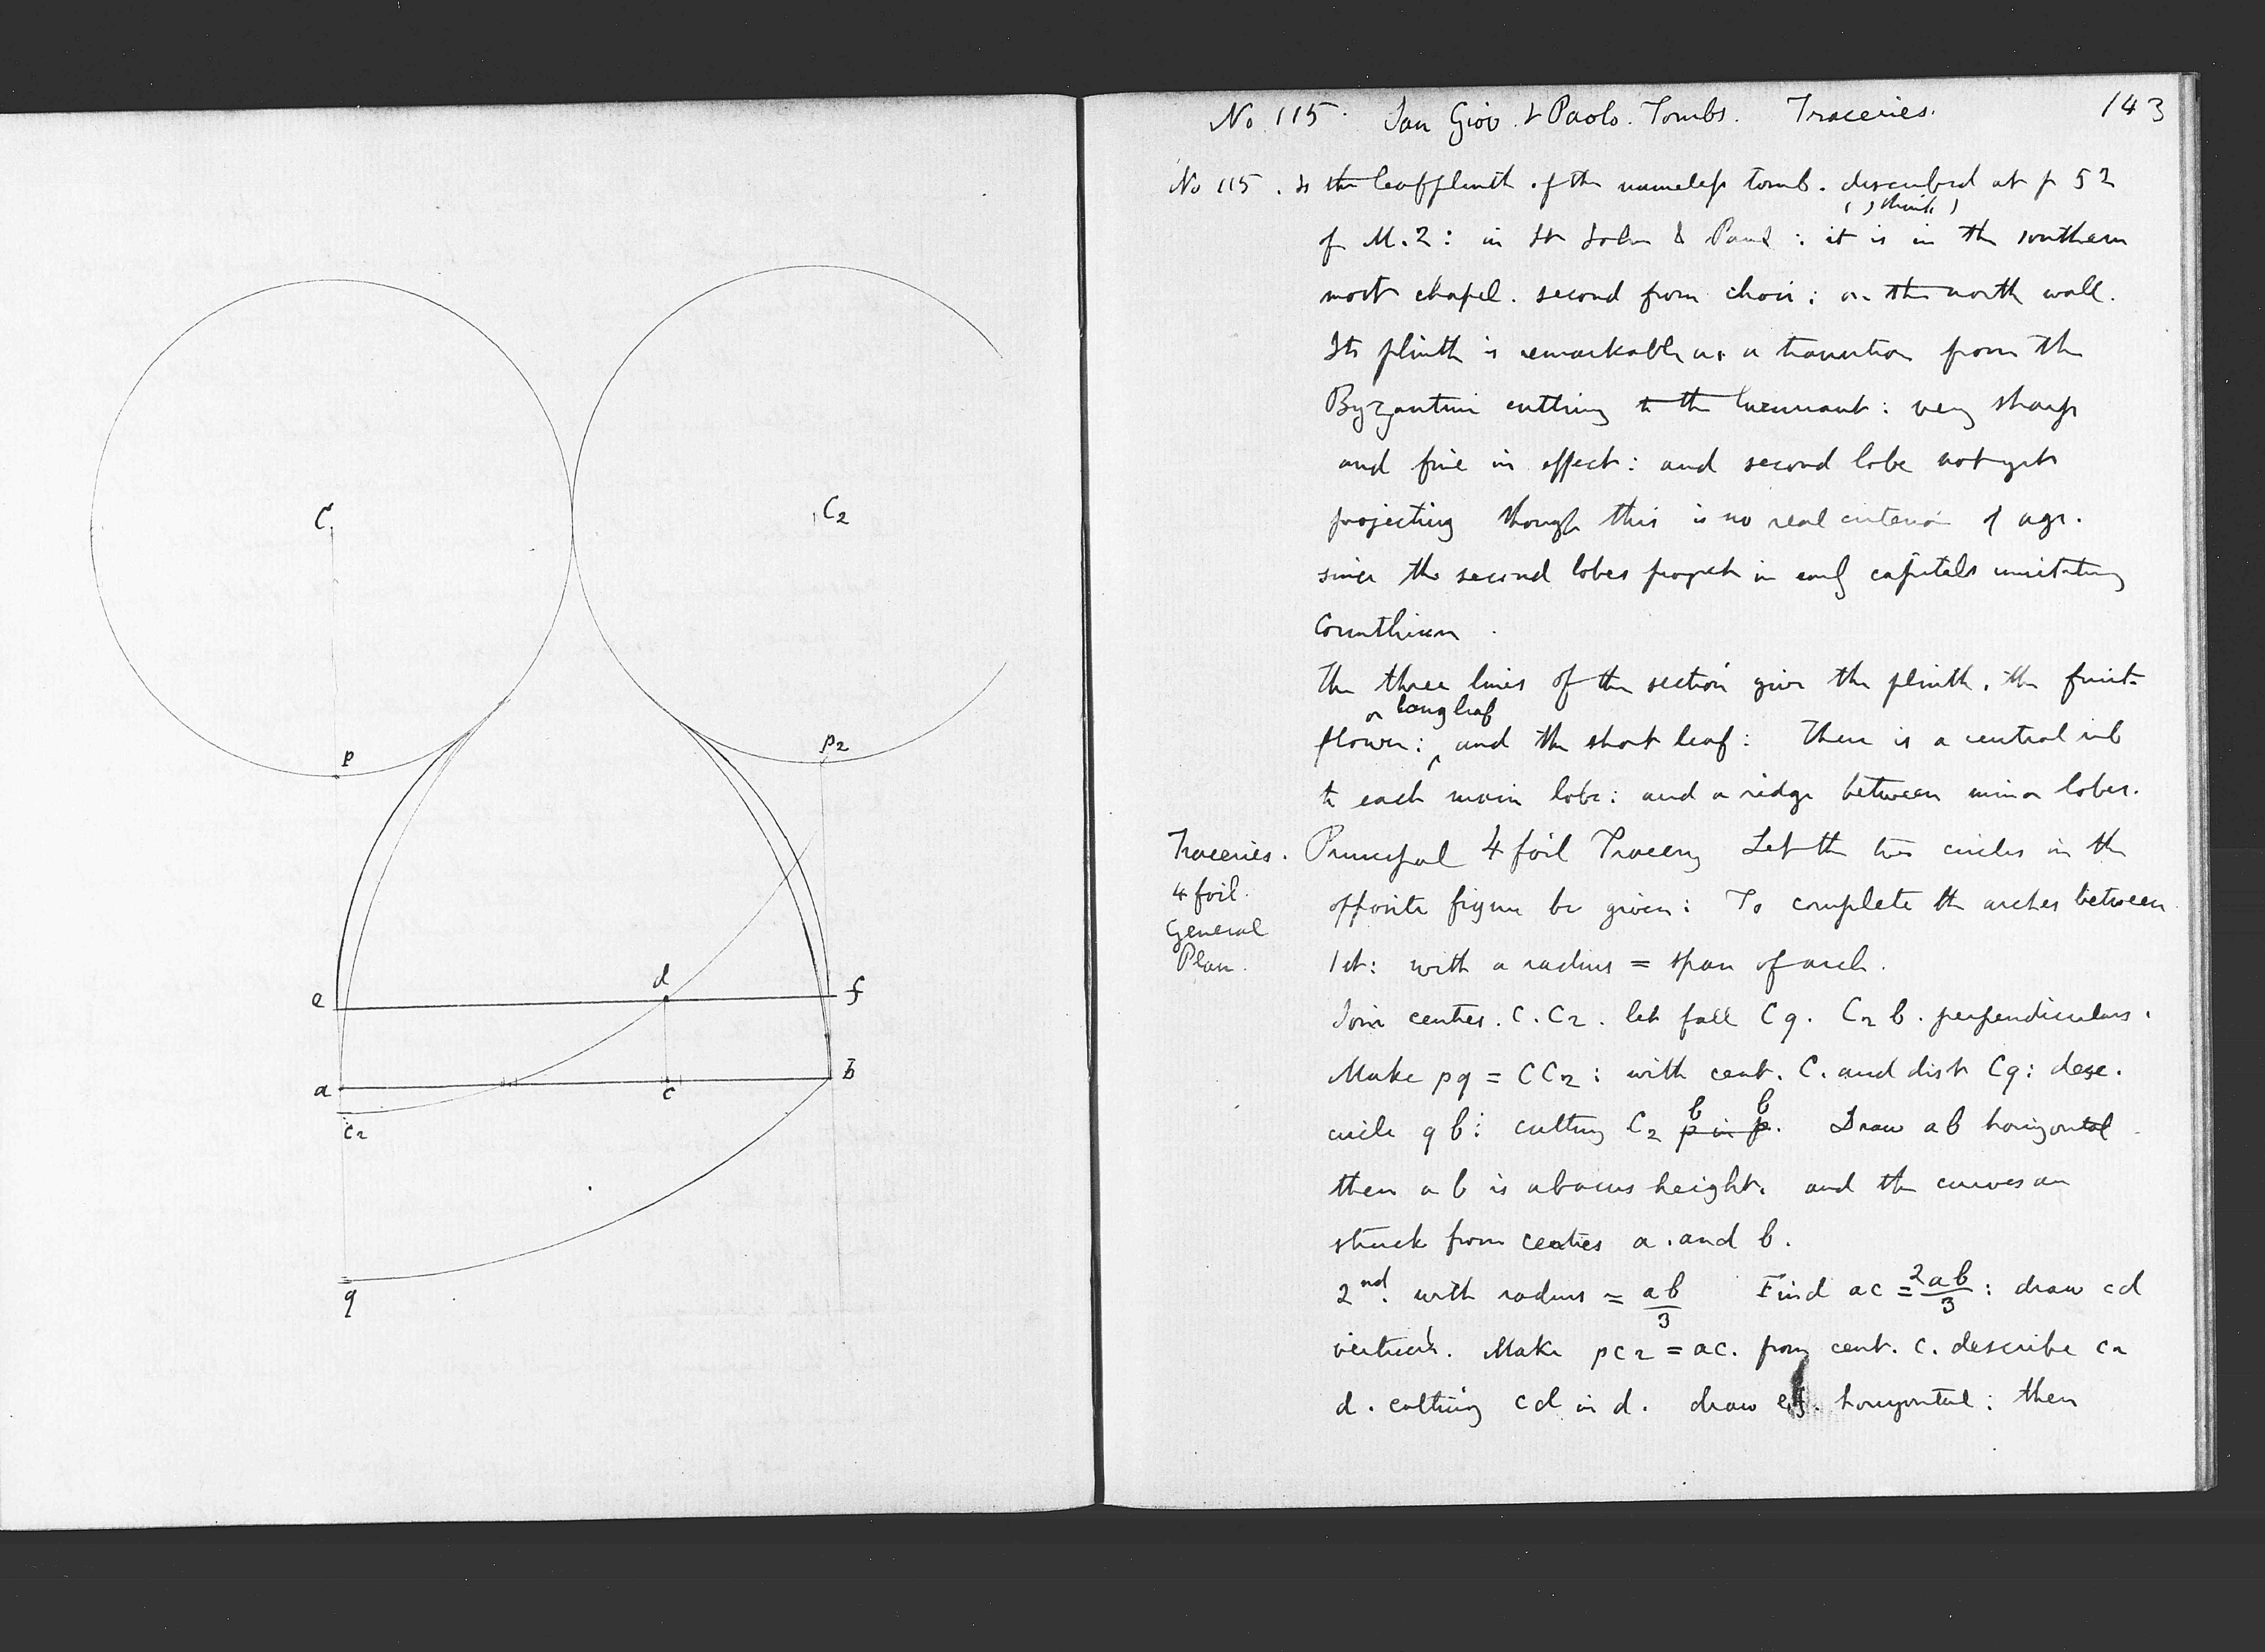 C
C2
p
p2
d
e
f
a
c
b
c2
q
No 115. San Giov. & Paolo. Tombs. Traceries. 143
No 115. Is the leafplinth of the nameless tomb. described at p 52
(I think)
of M.2: in St John & Paul: it is in the southern
most chapel. second from choir: on the north wall.
Its plinth is remarkable as a transition from the
Byzantine cutting to the luxuriant: very sharp
and fine in effect: and second lobe not yet
projecting though this is no real criterion of age.
since the second lobes project in early capitals imitating
Corinthian.
The three lines of the section give the plinth, the fruit
or long leaf
flower: and the short leaf: There is a central rib
to each main lobe: and a ridge between minor lobes.
Traceries. Principal 4 foil Tracery Let the two circles in the
4 foil. opposite figure be given: To complete the arches between
General
Plan. 1st: with a radius = span of arch.
Join centres. C. C2. let fall Cq. C2 b. perpendiculars.
Make pq = CC2: with cent. C. and dist Cq: desc.
b b
circle qb: cutting C2 p in p. Draw ab horizontal
then ab is abacus height. and the curves are
struck from centres a. and b.
2nd. with radius = ab/3 Find ac = 2ab/3: draw cd
vertical. Make pc2 = ac. from cent. C. describe c2
d. cutting cd in d. draw ef. horizontal: then